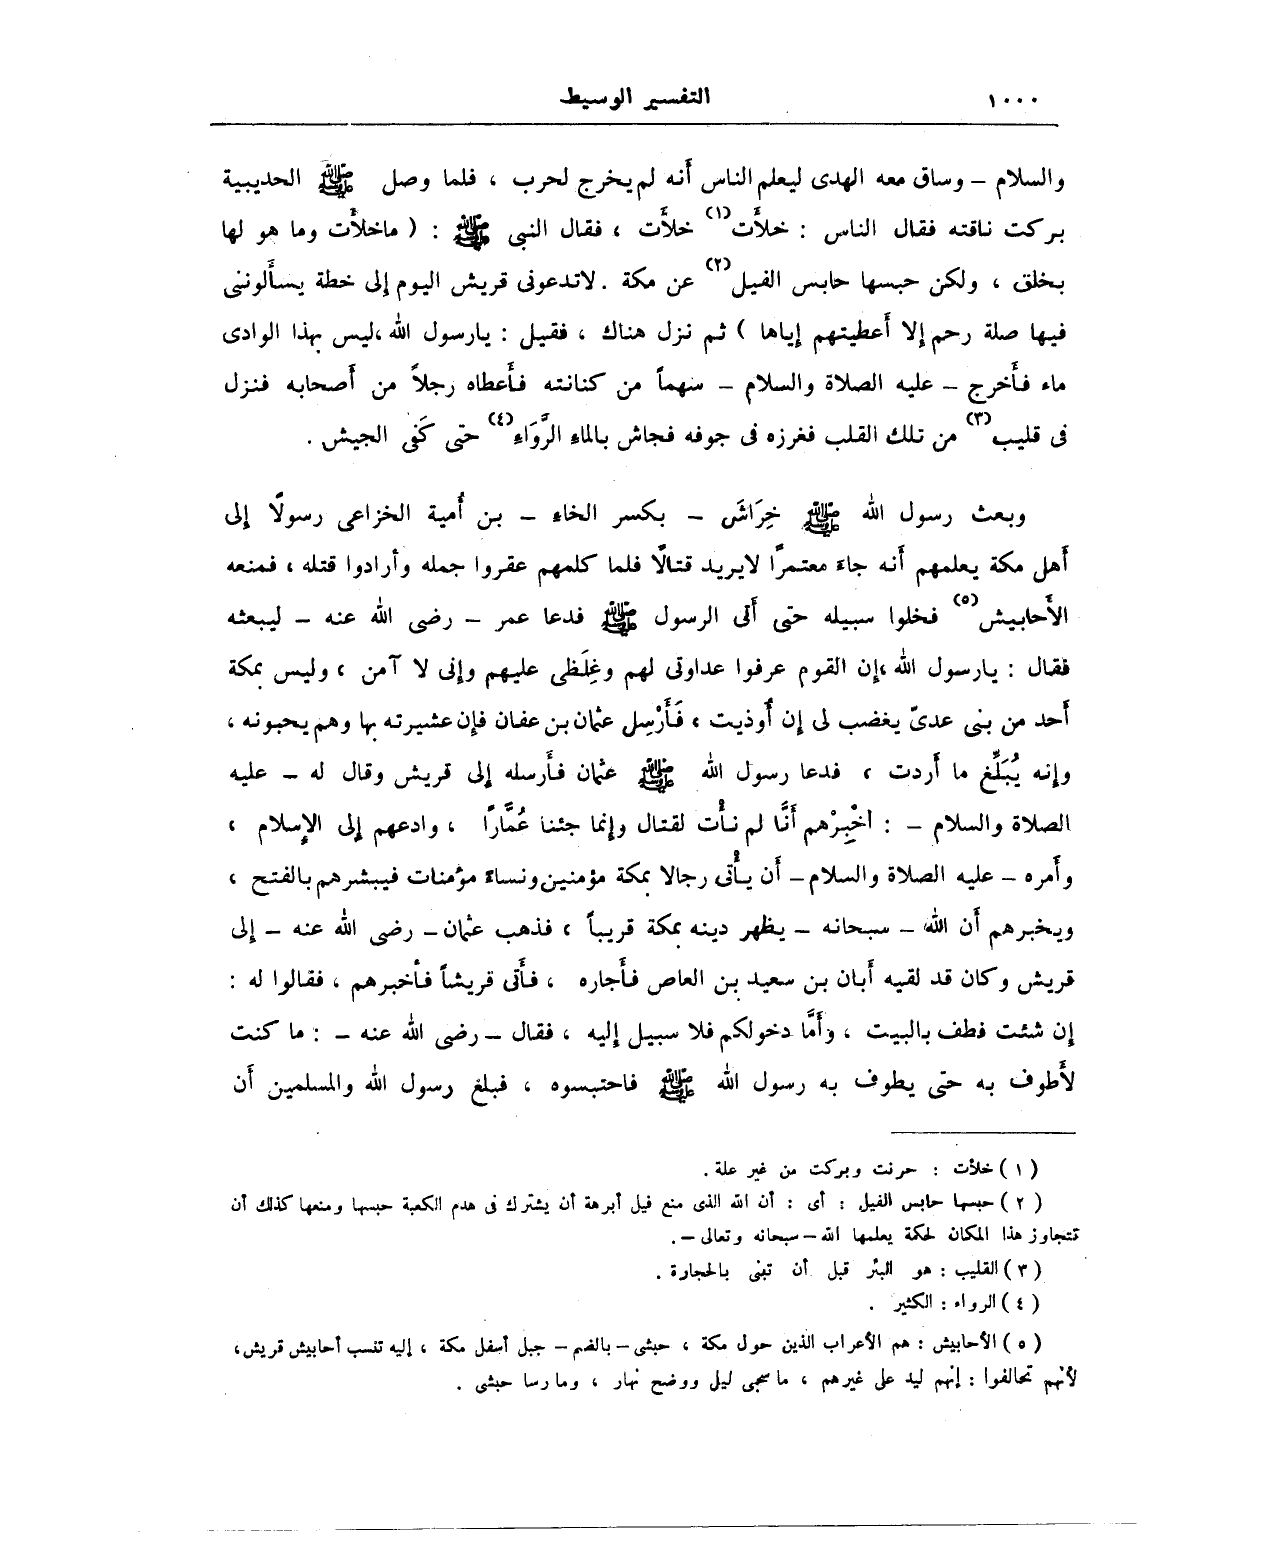 ١٠٠٠ التفسير الوسيط
والسلام – وساق معه الهدى ليعلم الناس أنه لم يخرج لحرب ، فلما وصل ﷺ الحديبية
بركت ناقته فقال الناس : خلأت(١) خلأت ، فقال النبى ﷺ : ( ماخلأت وما هو لها
بخلق ، ولكن حبسها حابس الفيل(٢) عن مكة . لاتدعونى قريش اليوم إلى خطة يسألوننى
فيها صلة رحم إلا أعطيتهم إياها ) ثم نزل هناك ، فقيل : يارسول الله ،ليس بهذا الوادى
ماء فأخرج – عليه الصلاة والسلام – سهماً من كنانته فأعطاه رجلاً من أصحابه فنزل
فى قليب(٣) من تلك القلب فغرزه فى جوفه فجاش بالماء الرَّوَاء(٤) حتى كَفى الجيش .
وبعث رسول الله ﷺ خِرَاشَ – بكسر الخاء – بن أُمية الخزاعى رسولًا إلى
أهل مكة يعلمهم أنه جاء معتمرًا لايريد قتالًا فلما كلمهم عقروا جمله وأرادوا قتله ، فمنعه
الأحابيش(٥) فخلوا سبيله حتى أتى الرسول ﷺ فدعا عمر – رضى الله عنه – ليبعثه
فقال : يارسول الله ،إن القوم عرفوا عداوتى لهم وغِلَظى عليهم وإنى لا آمن ، وليس بمكة
أحد من بنى عدىّ يغضب لى إن أُوذيت ، فَأَرْسِل عثمان بن عفان فإن عشيرته بها وهم يحبونه ،
وإنه يُبَلِّغ ما أردت ، فدعا رسول الله ﷺ عثمان فأرسله إلى قريش وقال له – عليه
الصلاة والسلام – : أخْبِرْهم أَنَّا لم نأْت لقتال وإنما جئنا عُمَّارًا ، وادعهم إلى الإسلام ،
وأمره – عليه الصلاة والسلام – أن يأْتى رجالا بمكة مؤمنين ونساء مؤمنات فيبشرهم بالفتح ،
ويخبرهم أن الله – سبحانه – يظهر دينه بمكة قريباً ، فذهب عثمان – رضى الله عنه – إلى
قريش وكان قد لقيه أبان بن سعيد بن العاص فأجاره ، فأتى قريشاً فأخبرهم ، فقالوا له :
إن شئت فطف بالبيت ، وأمَّا دخولكم فلا سبيل إليه ، فقال – رضى الله عنه – : ما كنت
لأطوف به حتى يطوف به رسول الله ﷺ فاحتبسوه ، فبلغ رسول الله والمسلمين أن
( ١ ) خلأت : حرنت وبركت من غير علة .
( ٢ ) حبسها حابس الفيل : أى : أن الله الذى منع فيل أبرهة أن يشترك فى هدم الكعبة حبسها ومنعها كذلك أن
تتجاوز هذا المكان لحكمة يعلمها الله – سبحانه وتعالى – .
( ٣ ) القليب : هو البئر قبل أن تبنى بالحجارة .
( ٤ ) الرواء : الكثير .
( ٥ ) الأحابيش : هم الأعراب الذين حول مكة ، حبشى – بالضم – جبل أسفل مكة ، إليه تنسب أحابيش قريش ،
لأنهم تحالفوا : إنهم ليد على غيرهم ، ما سجى ليل ووضح نهار ، وما رسا حبشى .